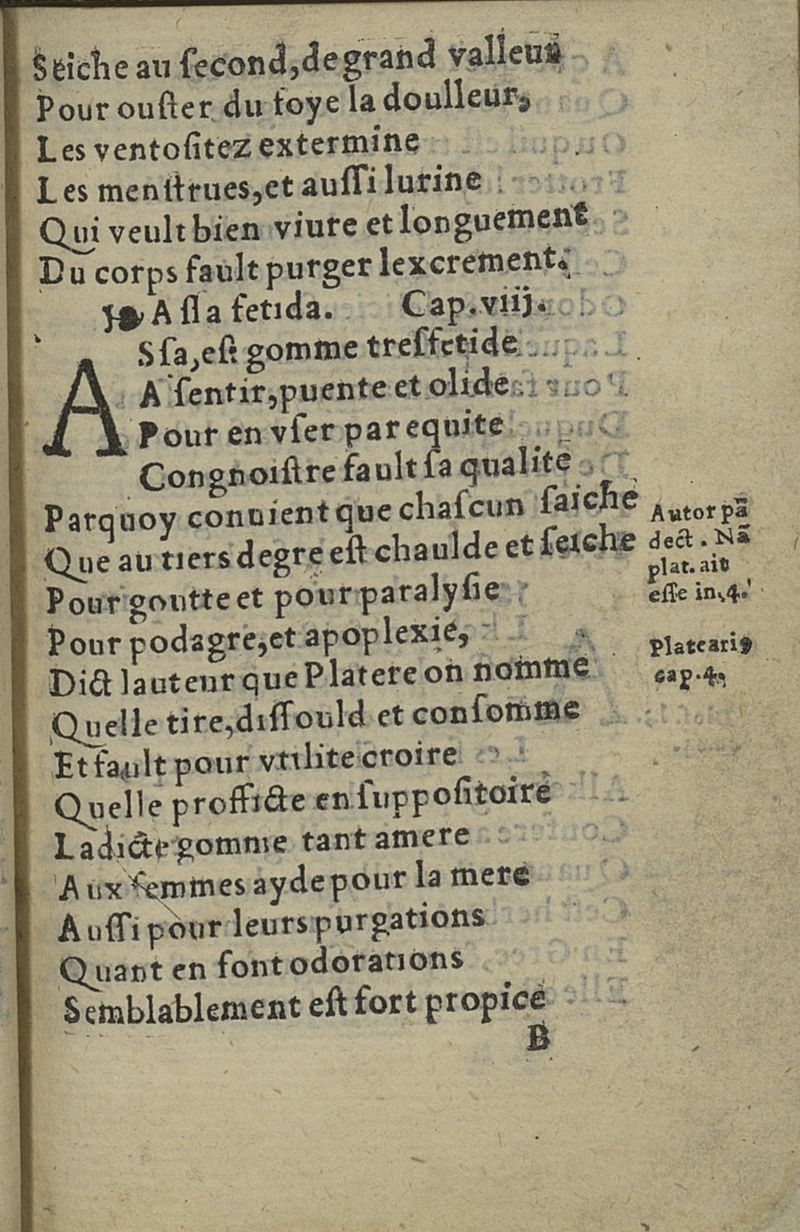 Seiche au ſecond,de grand valleur
Pour ouſter du foye la doulleur,
Les ventoſitez extermine
Les menſtrues,et auſſi lurine
Qui veult bien viure et longuement
Du corps fault purger lexcrement.
Aſſa fetida. Cap.viij.
ASſa,eſt gomme treſfetide
A ſentir,puente et olide
Pour en vſer par equite
Congnoiſtre fault ſa qualite
Parquoy conuient que chaſcun ſaiche
Que au tiers degre eſt chaulde et ſeiche
Pour goutte et pour paralyſie
Pour podagre,et apoplexie,
Dict lauteur que Platere on nomme
Quelle tire,diſſould et conſomme
Et fault pour vtilite croire
Quelle profficte en ſuppoſitoire
Ladicte gomme tant amere
Aux femmes ayde pour la mere
Auſſi pour leurs purgations
Quant en font odorations
Semblablement eſt fort propice
B
Autor pā
dect. Nā
plat. ait
eſſe in.4.
Plateariꝰ
cap.4.